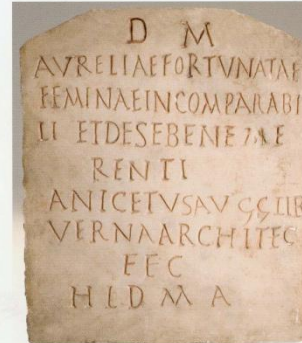 D M
AVRELIAE FORTVNATAE
FEMINAE INCOMPARABI
LI ET DE SE BENE ME
RENTI
ANICETVS AVGG LIB
VERNA ARCHITEC
FEC
H L D M A